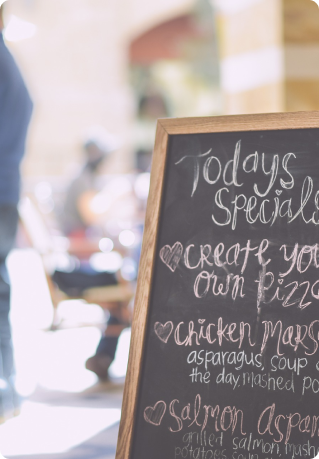 Todays
Specials
create you
own Pizza
chicken Mars
asparagus, soup
the day, mashed po
Salmon Aspar
grilled salmon, mush
potatoes